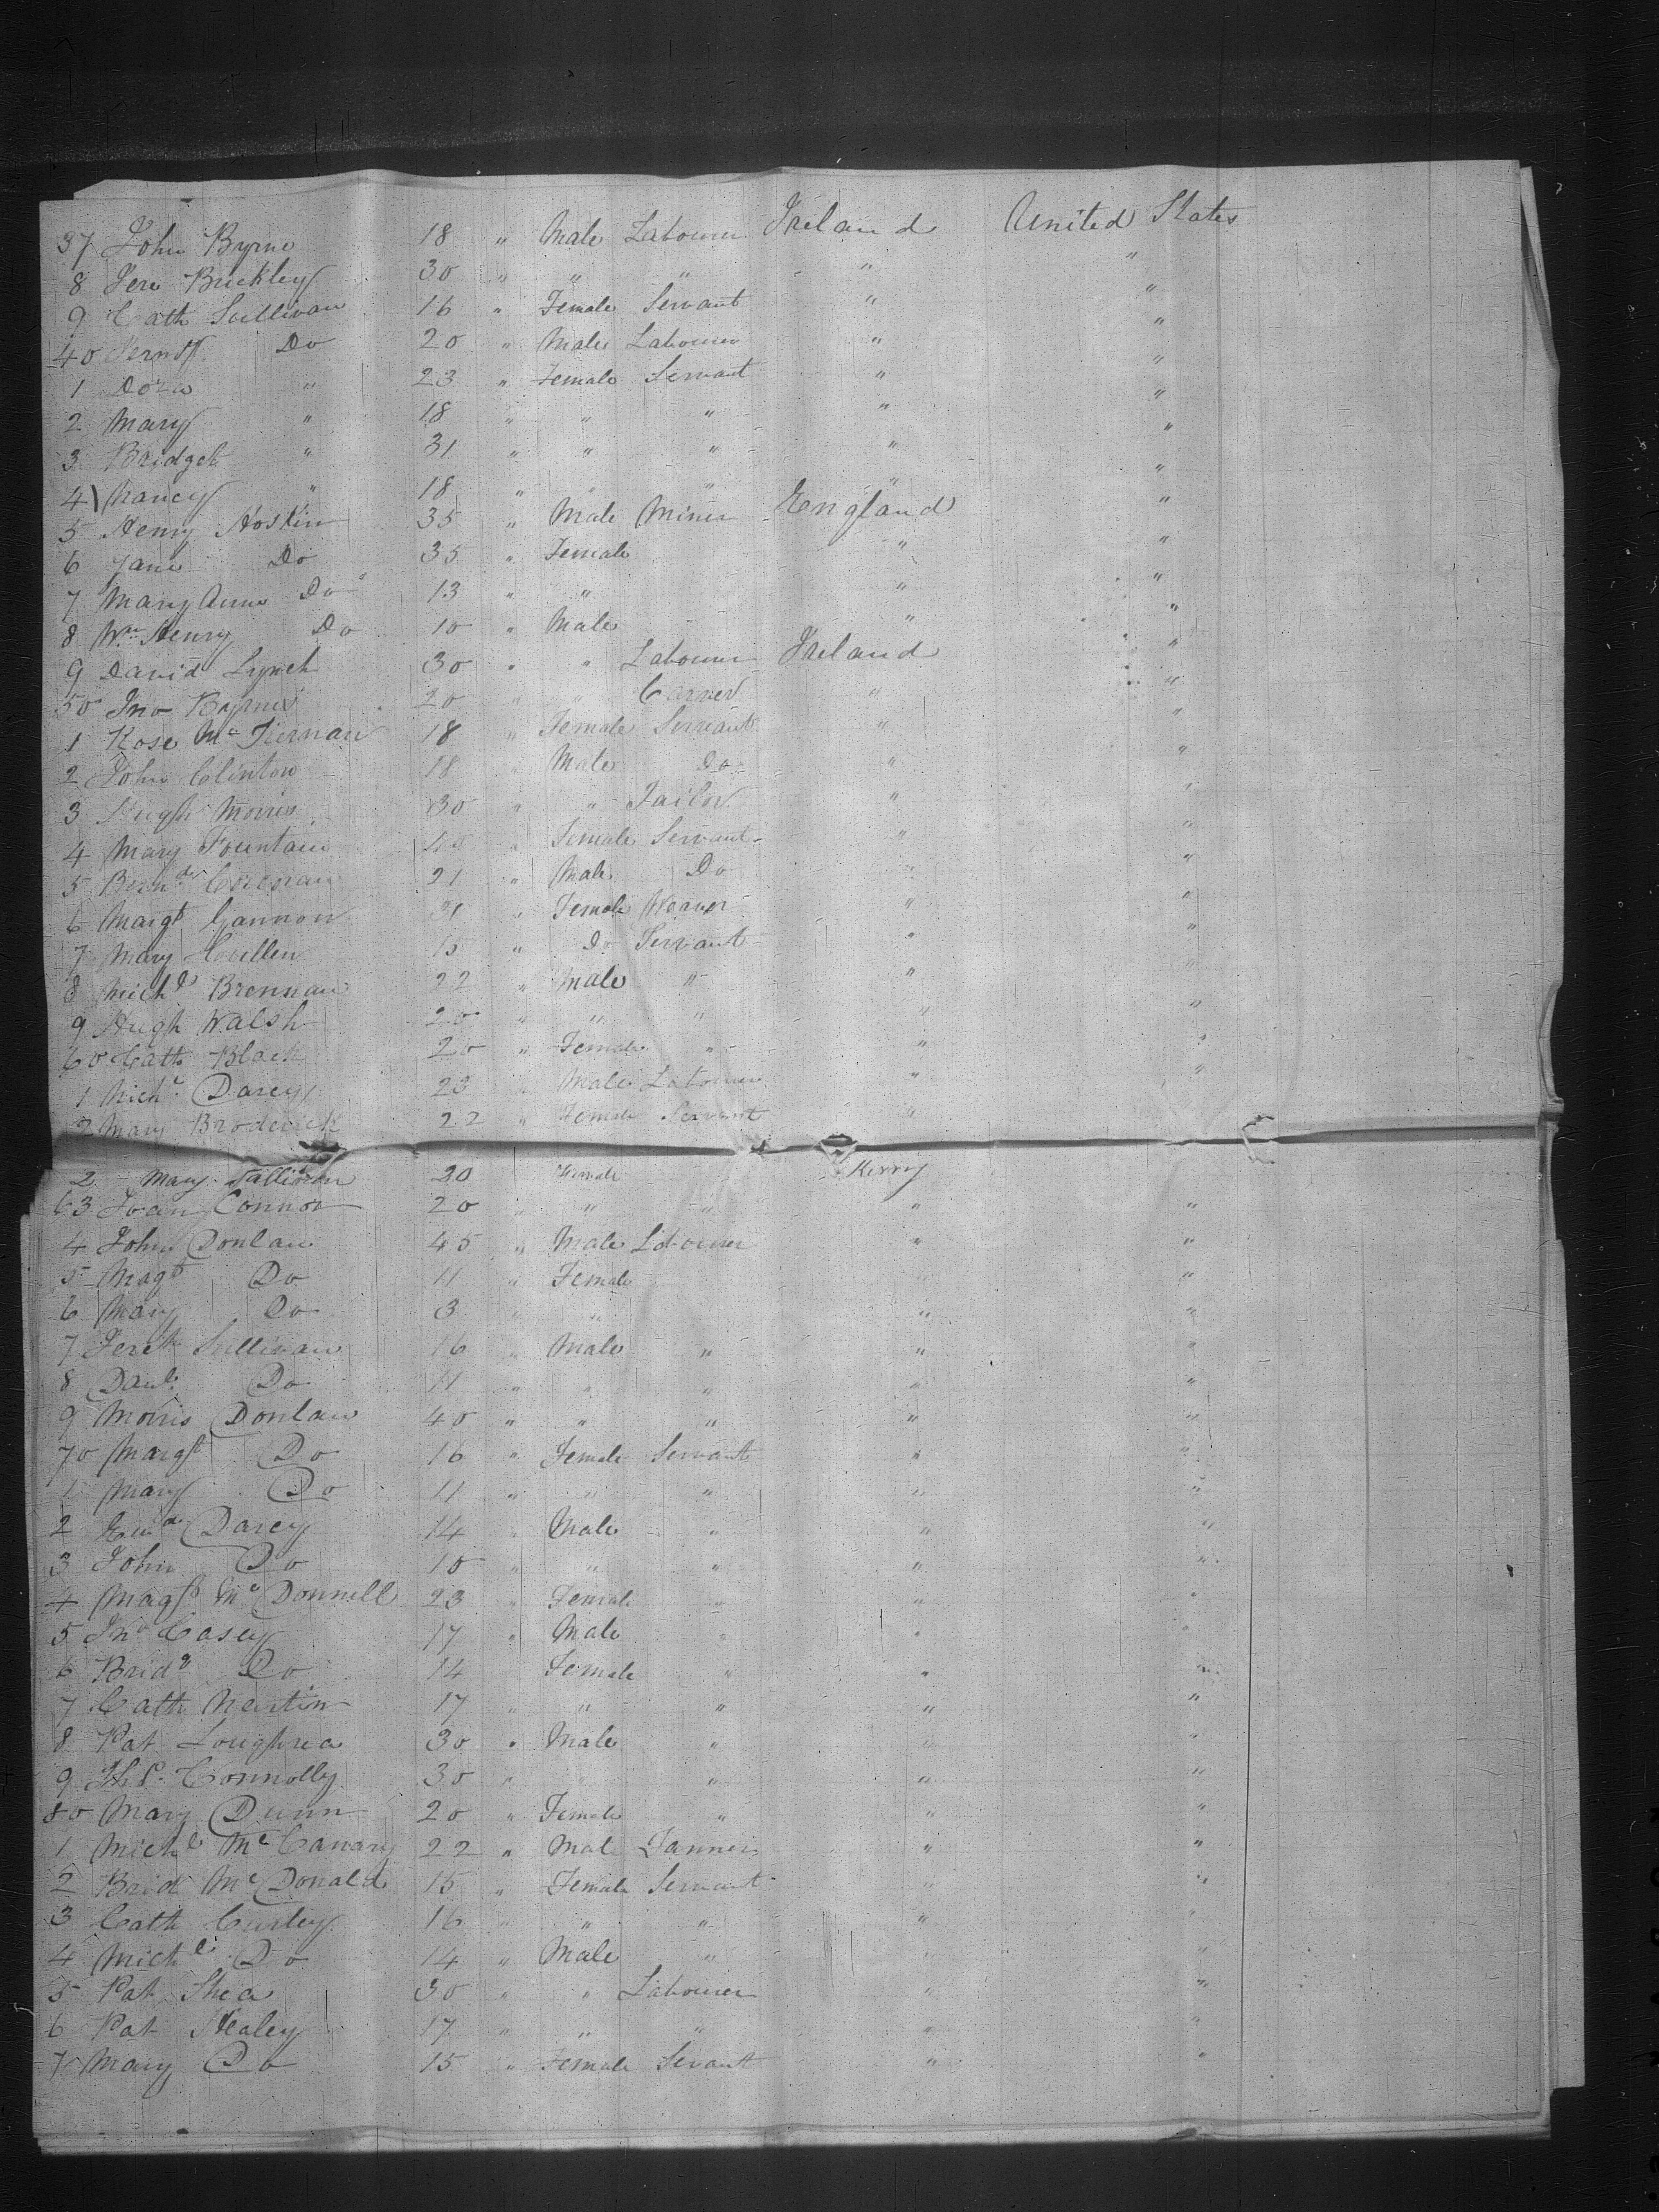 37 John Byrne 18 " Male Labourer Ireland United States
8 Jere Buckley 30 " " " " "
9 Cath Sullivan 16 " Female Servant " "
40 Do 20 " Male Labourer " "
1 Dora " 23 " Female Servant " "
2 Mary " 18 " " " " "
3 Bridget " 31 " " " " "
4 Nancy " 18 " " " " "
5 Henry Hostin 35 " Male Miner England "
6 Jane Do 35 " Female " "
7 Mary Anne Do 13 " " " "
8 Wm Henry Do 10 " Male " "
9 David Lynch 30 " " Labourer Ireland "
50 Jno Byrnes 20 " " Carver " "
1 Rose Mc Tiernan 18 " Female Servant " "
2 John Clinton 18 Male Do " "
3 Hugh Morris 30 " " Tailor " "
4 Mary Fountain " Female Servant " "
5 Bernd Corcoran 21 " Male Do " "
6 Margt Gannon 31 " Female Weaver " "
7 Mary 15 " Do Servant " "
8 Michl Brennan 22 " Male " " "
9 Hugh Walsh 20 " " " " "
60 Cath Black 20 " Female " " "
1 Michl Darcy 23 " Male Labourer " "
2 Mary Broderick 22 " Female Servant "
2 Mary Sullivan 20 Female Kerry
63 Joan Connor 20 " " " " "
4 John Donlan 45 " Male Labourer " "
5 Magt Do 11 " Female "
6 Mary Do 3 " " " "
7 Sullivan 16 " Male " " "
8 Danl Do 11 " " " " "
9 Morris Donlan 40 " " " " "
70 Margt Do 16 " Female Servant " "
1 Mary Do 11 " " " " "
2 Edwd Darcy 14 " Male " " "
3 John Do 10 " " " " "
4 Magt Mc Donnell 23 " Female " " "
5 Jno Casey 17 " Male " " "
6 Bridg Do 14 Female " " "
7 Cath Martin 17 " " " " "
8 Pat Loughrea 30 " Male " " "
9 Connolly 30 " " " " "
80 Mary Dunn 20 " Female " " "
1 Michl Mc Canary 22 " Male Tanner " "
2 Brid Mc Donald 15 " Female Servant " "
3 Cath Curley 16 " " " " "
4 Michl Do 14 " Male " " "
5 Pat Shea 30 " " Labourer " "
6 Pat Healey 17 " " " " "
7 Mary Do 15 " Female Sevant " "